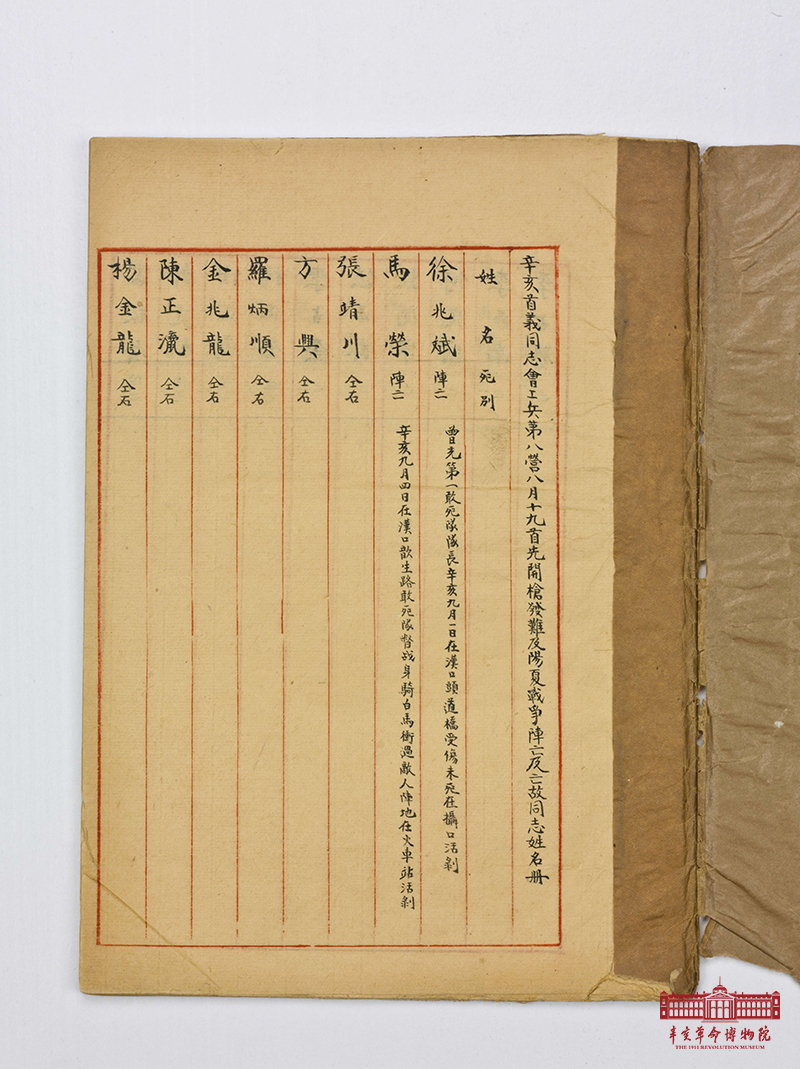 辛亥首義同志會工兵第八營八月十九首先開槍發難及陽夏戰爭陣亡及亡故同志姓名册
姓名 死別
徐兆斌 陣亡 曾充第一敢死隊隊長辛亥九月一日在漢口頭道橋受傷未死在攝口活剝
馬榮 陣亡 辛亥九月四日在漢口歆生路敢死隊督战身騎白馬衝過敵人陣地在火車站活剝
張靖川 仝右
方興 仝右
羅炳順 仝右
金兆龍 仝右
陳正瀛 仝右
楊金龍 仝右
辛亥革命博物院
THE 1911 REVOLUTION MUSEUM